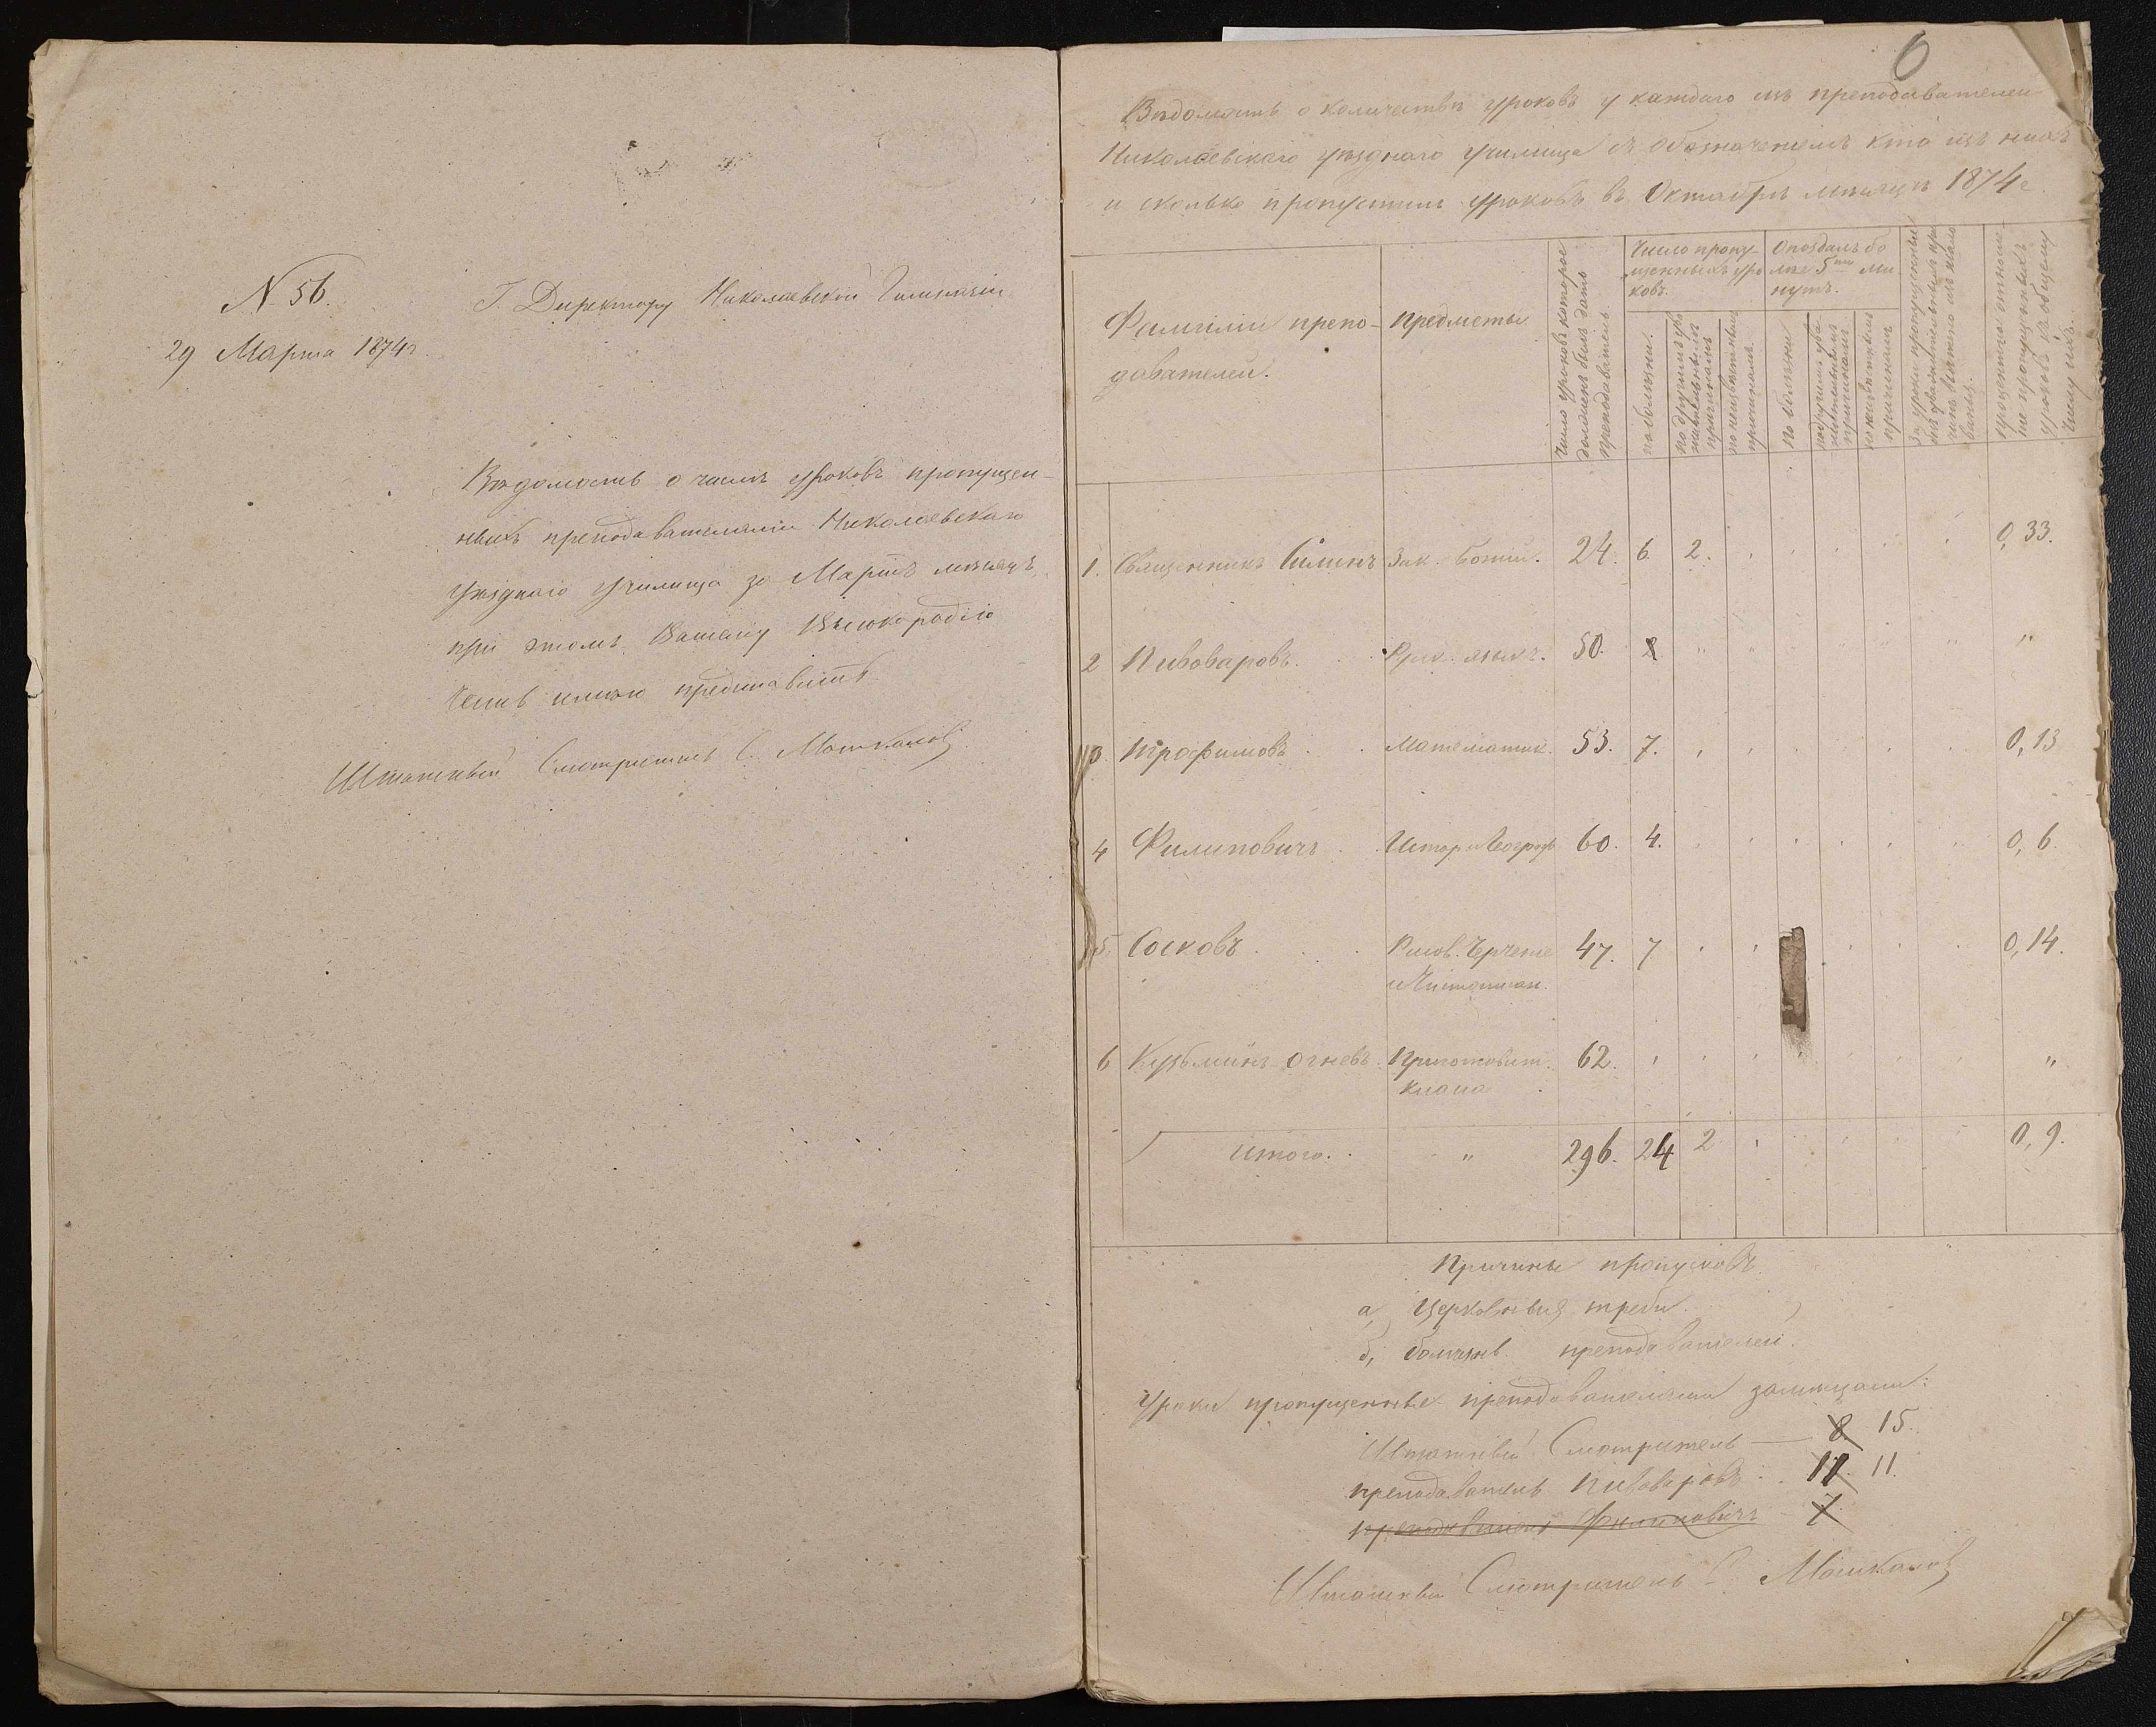 N 56.
29 Марта 1874 г.
Г. Директору Николаевской Гимназіи
Вѣдомость о числѣ уроковъ пропущен-
ныхъ преподавателями Николаевскаго
уѣзднаго училища за Мартъ мѣсяцъ,
при этомъ Вашему Высокородію
честь имѣю представить
Штатный Смотритель С. Машкановъ
6
Вѣдомость о количествѣ уроковъ у каждаго изъ преподавателей
Николаевскаго уѣзднаго училища съ обозначеніемъ кто изъ нихъ
и сколько пропустилъ уроковъ въ Октябрѣ мѣсяцѣ 1874 г.
Фамиліи препо-
давателей.
Предметы
Число уроковъ которое
долженъ былъ дать
преподаватель
Число пропу-
щенныхъ уро
ковъ.
по болѣзни.
по другимъ ува
жительнымъ
причинамъ
по неизвѣстнымъ
причинамъ.
Опоздалъ бо
лѣе 5ти ми
нутъ.
по болѣзни
по другимъ ува-
жительнымъ
причинамъ
по неизвѣстнымъ
причинамъ
За уроки пропущенные
процентное отноше
ніе пропущенныхъ
уроковъ къ общему
числу ихъ.
1. Священникъ Силинъ Зак. Божій. 24. 6 2. 0,33.
2 Пивоваровъ. Рус. языкъ. 50. " " " "
3. Трофимовъ Математик. 53. 7. 0,13
4 Филиповичъ Истор и Географ 60. 4. 0,6.
5. Сосковъ Рисов. Черчене 47. 7 0,14.
и Чистописан.
6 Кузьминъ Огневъ Приготовит. 62. "
класса
Итого. " 296. 24 2 0,9.
Причины пропусковъ
а, Церковныя требы.
б, болѣзнь преподавателей.
Уроки пропущенные преподавателями замѣщали:
Штатный Смотритель — 8. 15.
преподаватель Пивоваровъ 11. 11.
преподаватель Филиповичъ 7
Штатный Смотритель С. Машкановъ